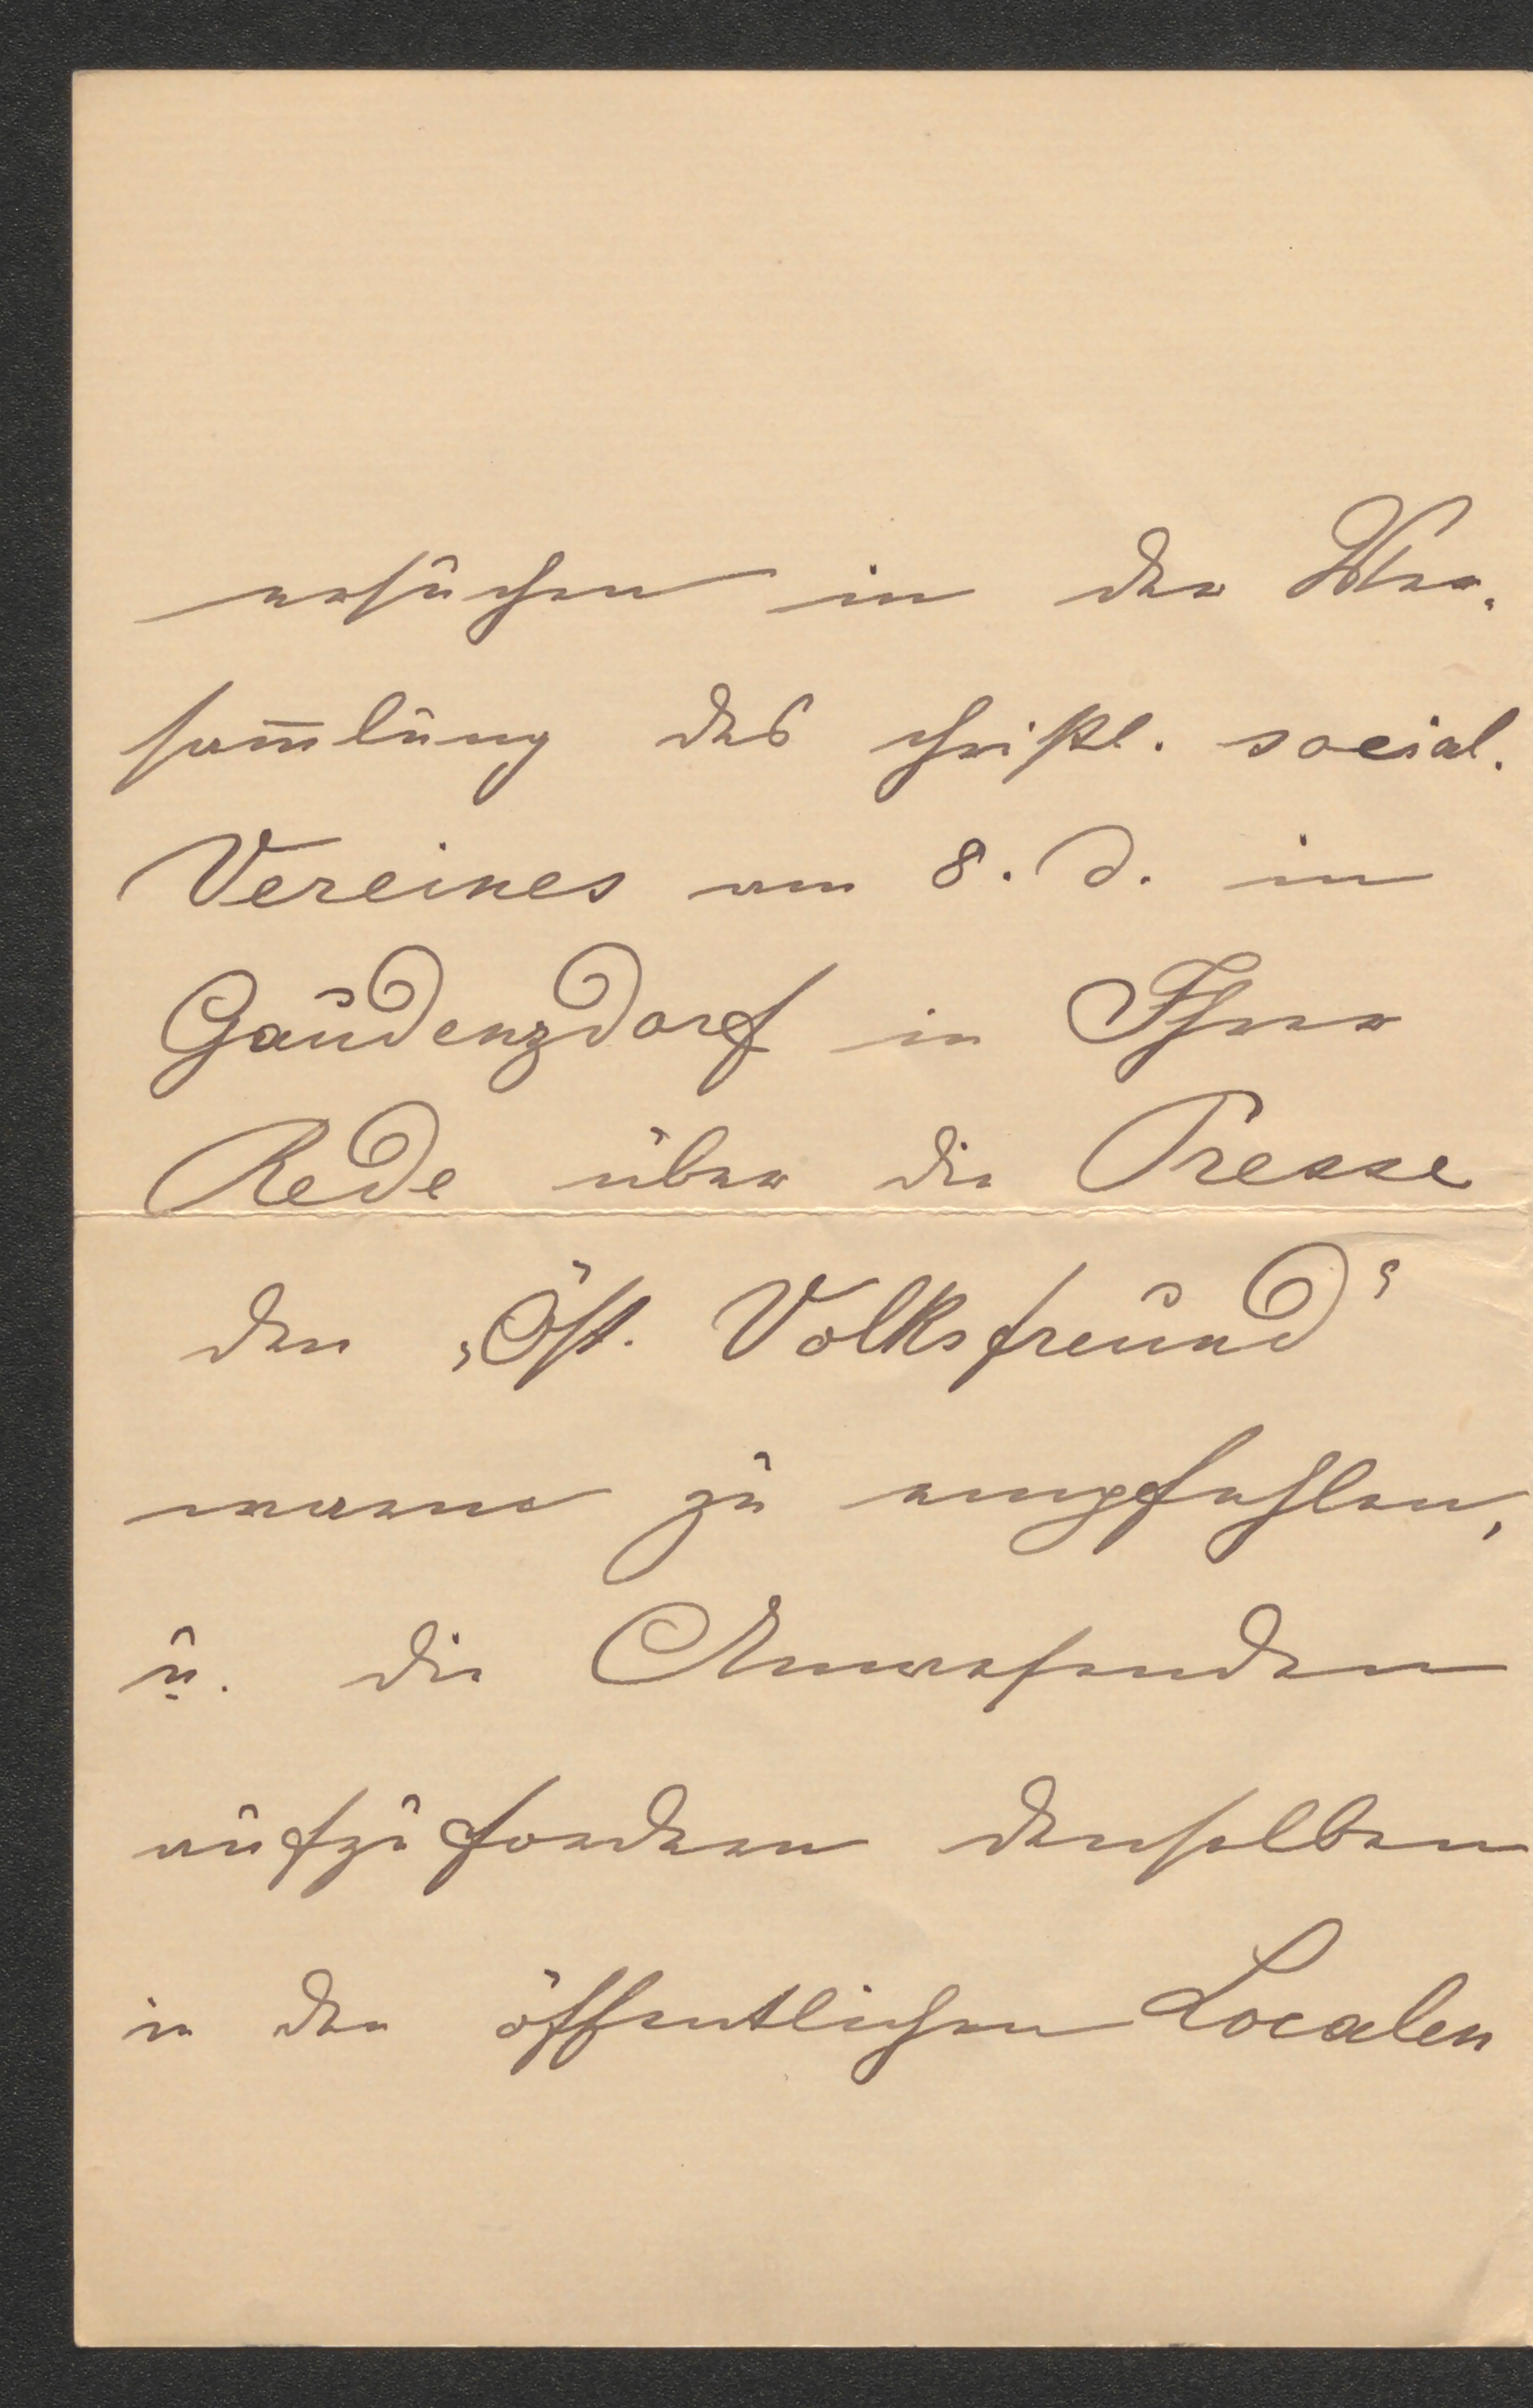 ersuchen in der Ver-
sam̅lung des christl. social.
Vereines am 8. d. in
Gaudenzdorf in Ihrer
Rede über die Presse
den „Öst. Volksfreund“
warm zu empfehlen,
u. die Anwesenden
aufzufordern denselben
in den öffentlichen Localen